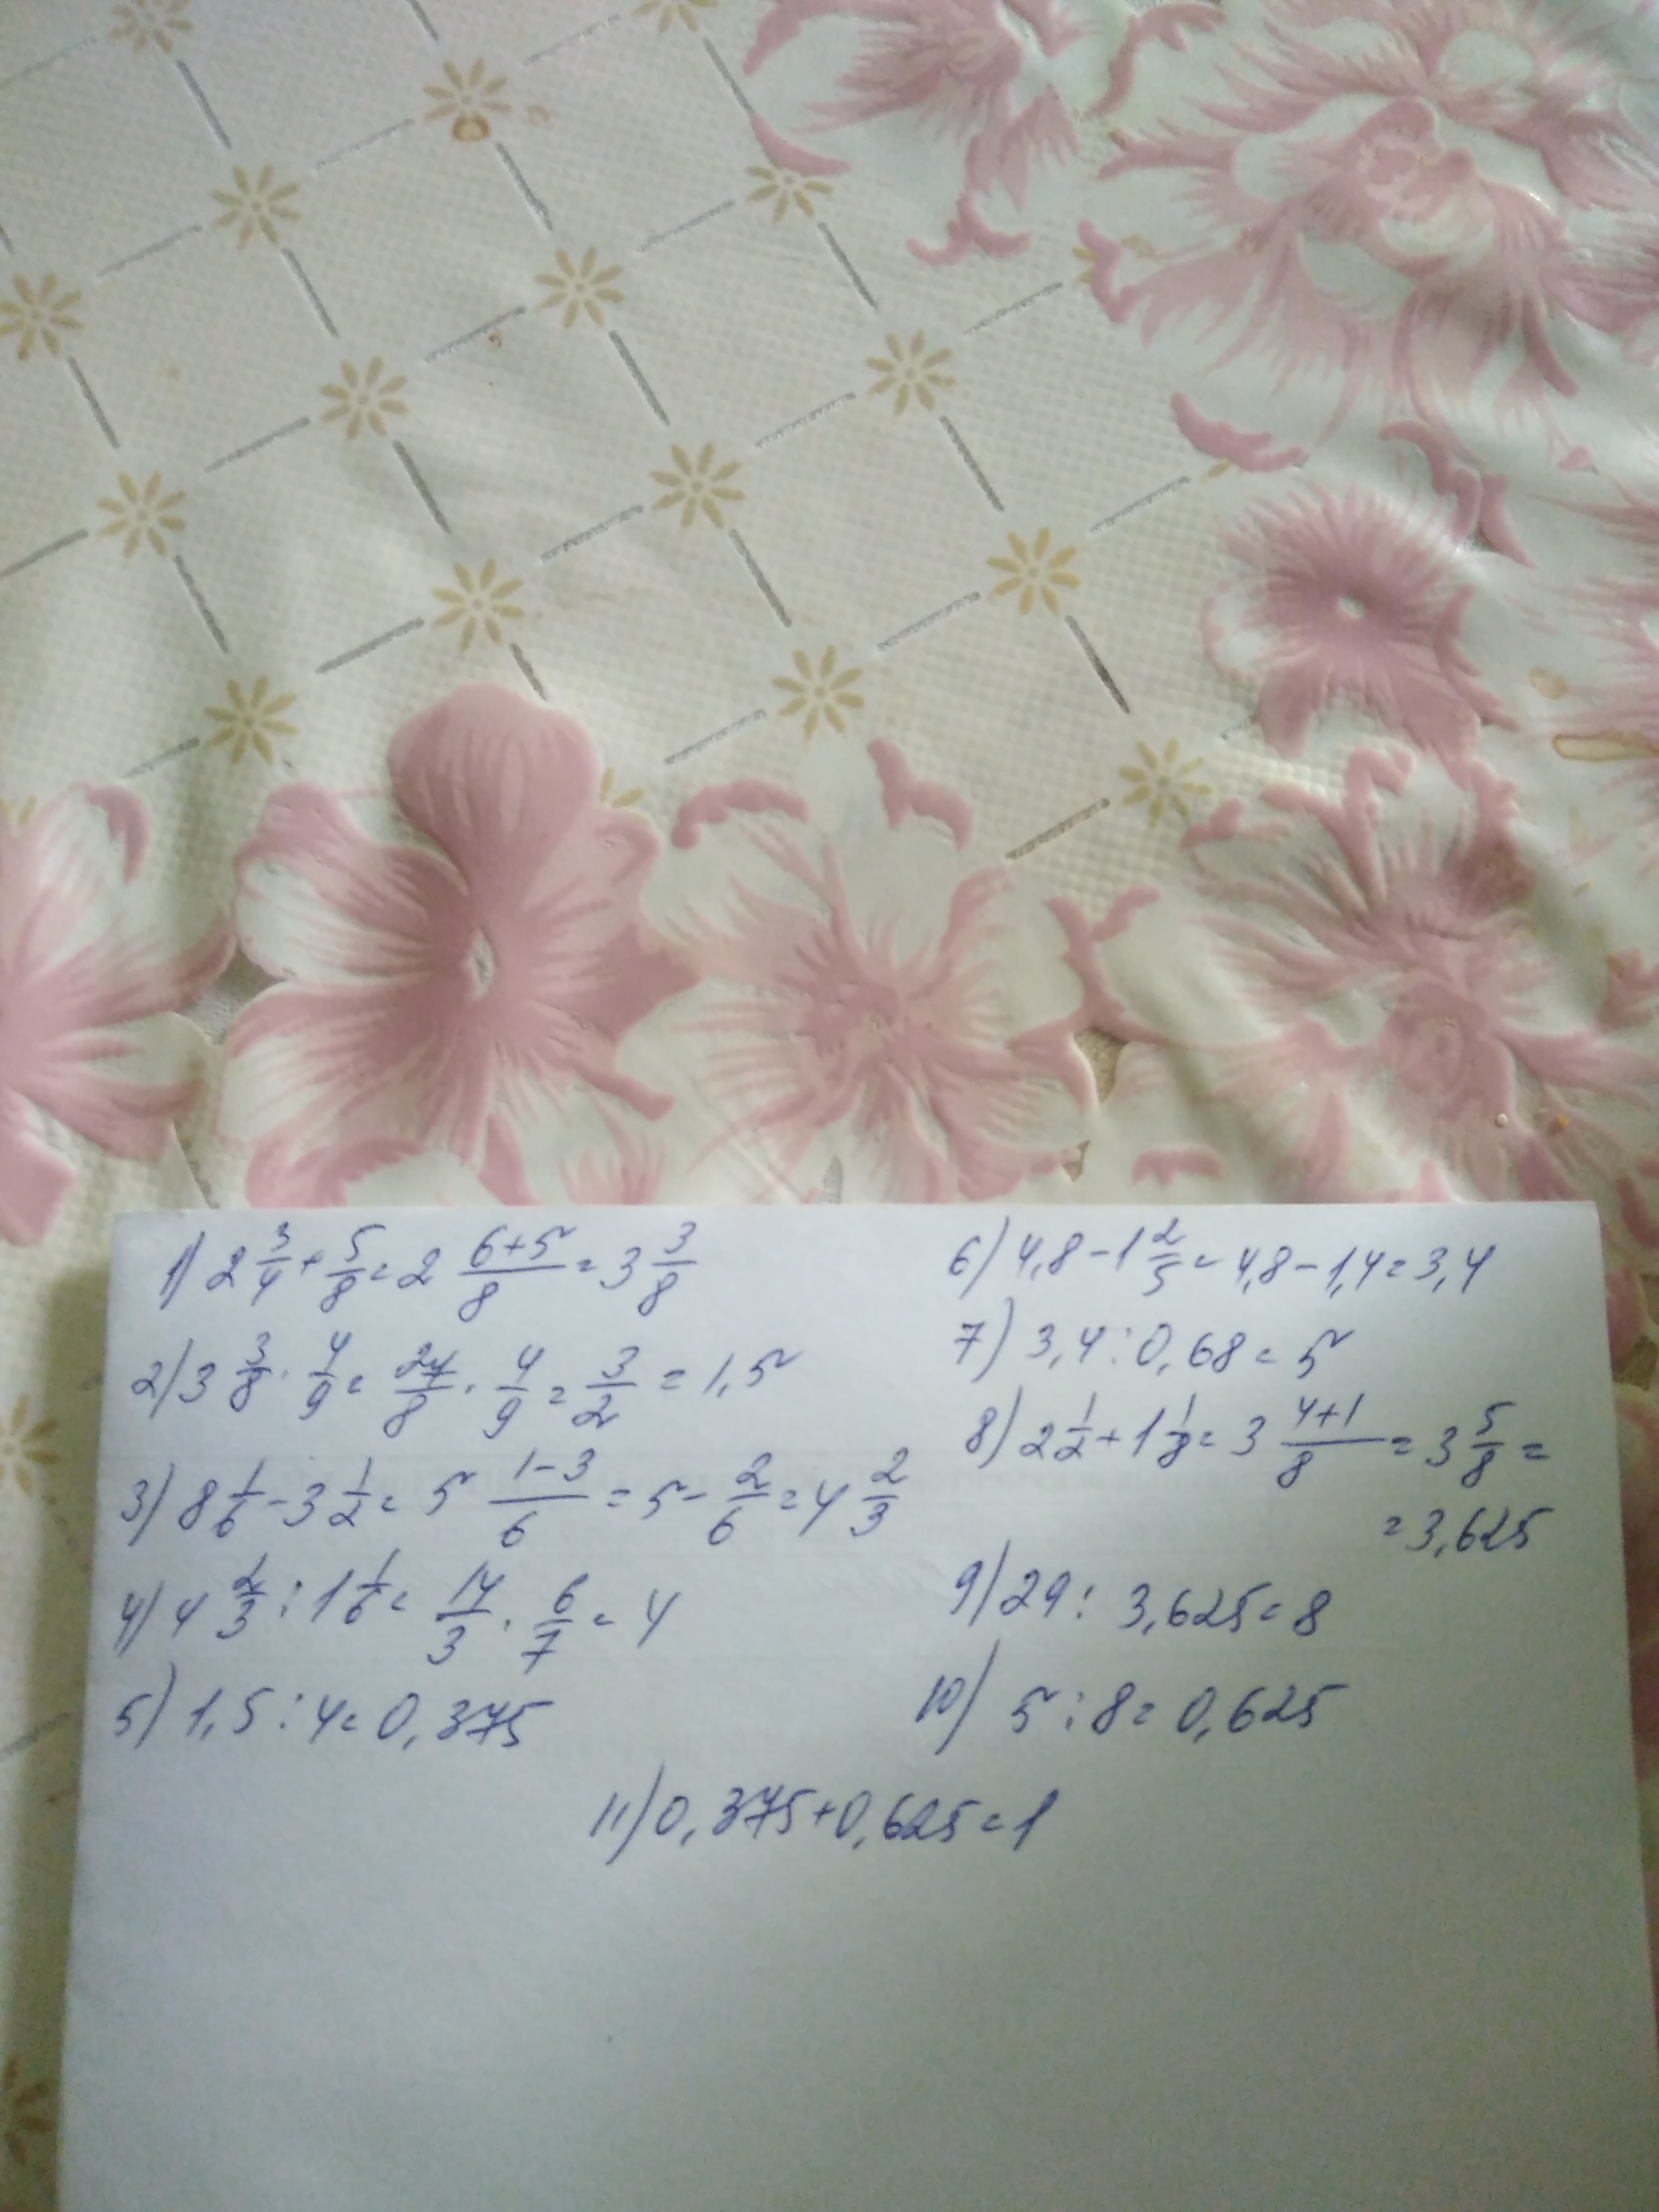 1) 2 3/4 + 5/8 = 2 (6+5)/8 = 3 3/8
2) 3 3/8 · 4/9 = 27/8 · 4/9 = 3/2 = 1,5
3) 8 1/6 - 3 1/2 = 5 (1-3)/6 = 5 - 2/6 = 4 2/3
4) 4 2/3 : 1 1/6 = 14/3 · 6/7 = 4
5) 1,5 : 4 = 0,375
6) 4,8 - 1 2/5 = 4,8 - 1,4 = 3,4
7) 3,4 : 0,68 = 5
8) 2 1/2 + 1 1/8 = 3 (4+1)/8 = 3 5/8 =
= 3,625
9) 29 : 3,625 = 8
10) 5 : 8 = 0,625
11) 0,375 + 0,625 = 1